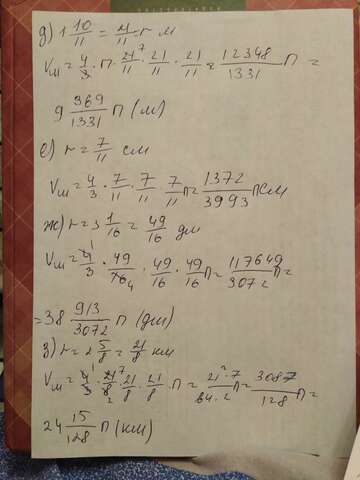 д) 1 10/11 = 21/11 = r м
Vш = 4/3 · п · 21⁷/11 · 21/11 · 21/11 = 12348/1331 п =
9 369/1331 п (м)
е) r = 7/11 см
Vш = 4/3 · 7/11 · 7/11 · 7/11 п = 1372/3993 п см
ж) r = 3 1/16 = 49/16 дм
Vш = 4¹/3 · 49/16₄ · 49/16 · 49/16 п = 117649/3072 п =
= 38 913/3072 п (дм)
з) r = 2 5/8 = 21/8 км
Vш = 4¹/3 · 21⁷/8₂ · 21/8 · 21/8 · п = 21² · 7/64 · 2 п = 3087/128 п =
24 15/128 п (км)